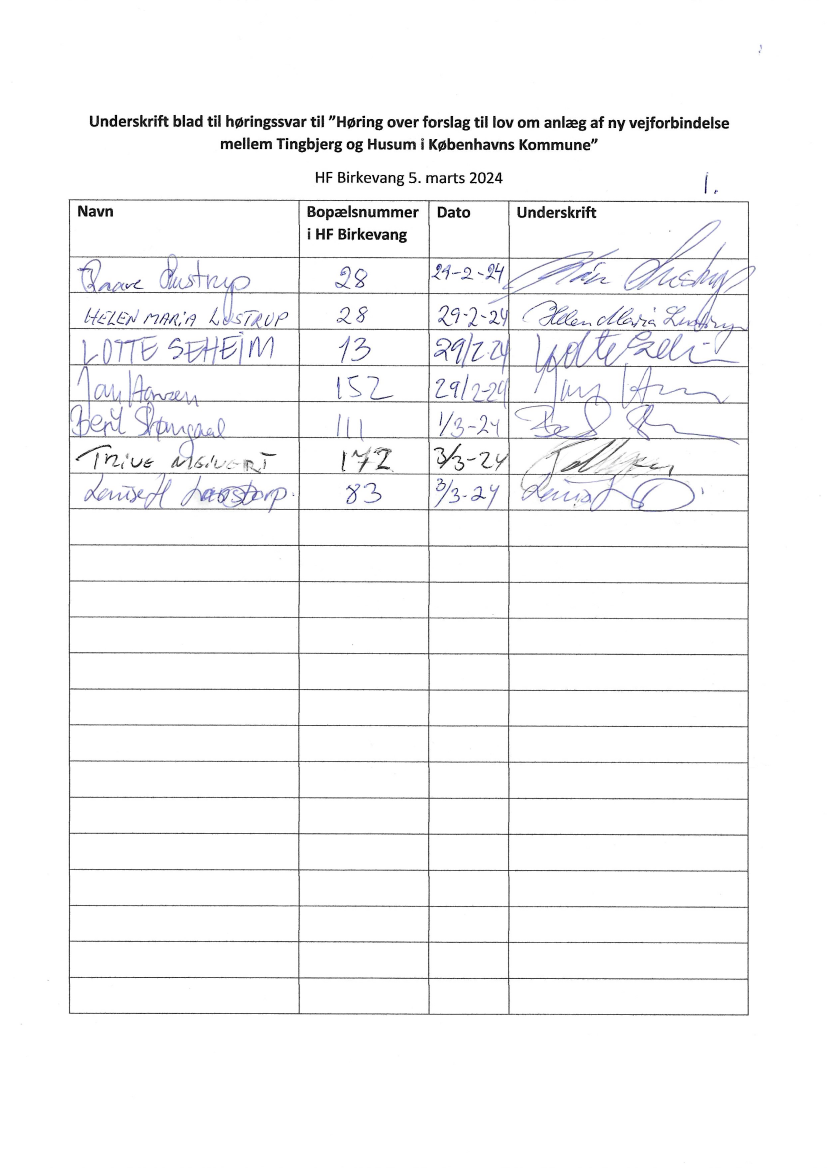 Underskrift blad til høringssvar til ”Høring over forslag til lov om anlæg af ny vejforbindelse
mellem Tingbjerg og Husum i Københavns Kommune”
HF Birkevang 5. marts 2024
1.
Navn Bopælsnummer i HF Birkevang Dato Underskrift
Lustrup 28 29-2-24
HELEN MARIA LUSTRUP 28 29-2-24 Helen Maria Lustrup
LOTTE SEHEIM 13 29/2-24 Lotte
Jan Hansen 152 29/2-24 Jan
Berit 111 1/3-24
172 3/3-24
Louise H 83 3/3-24 Louise